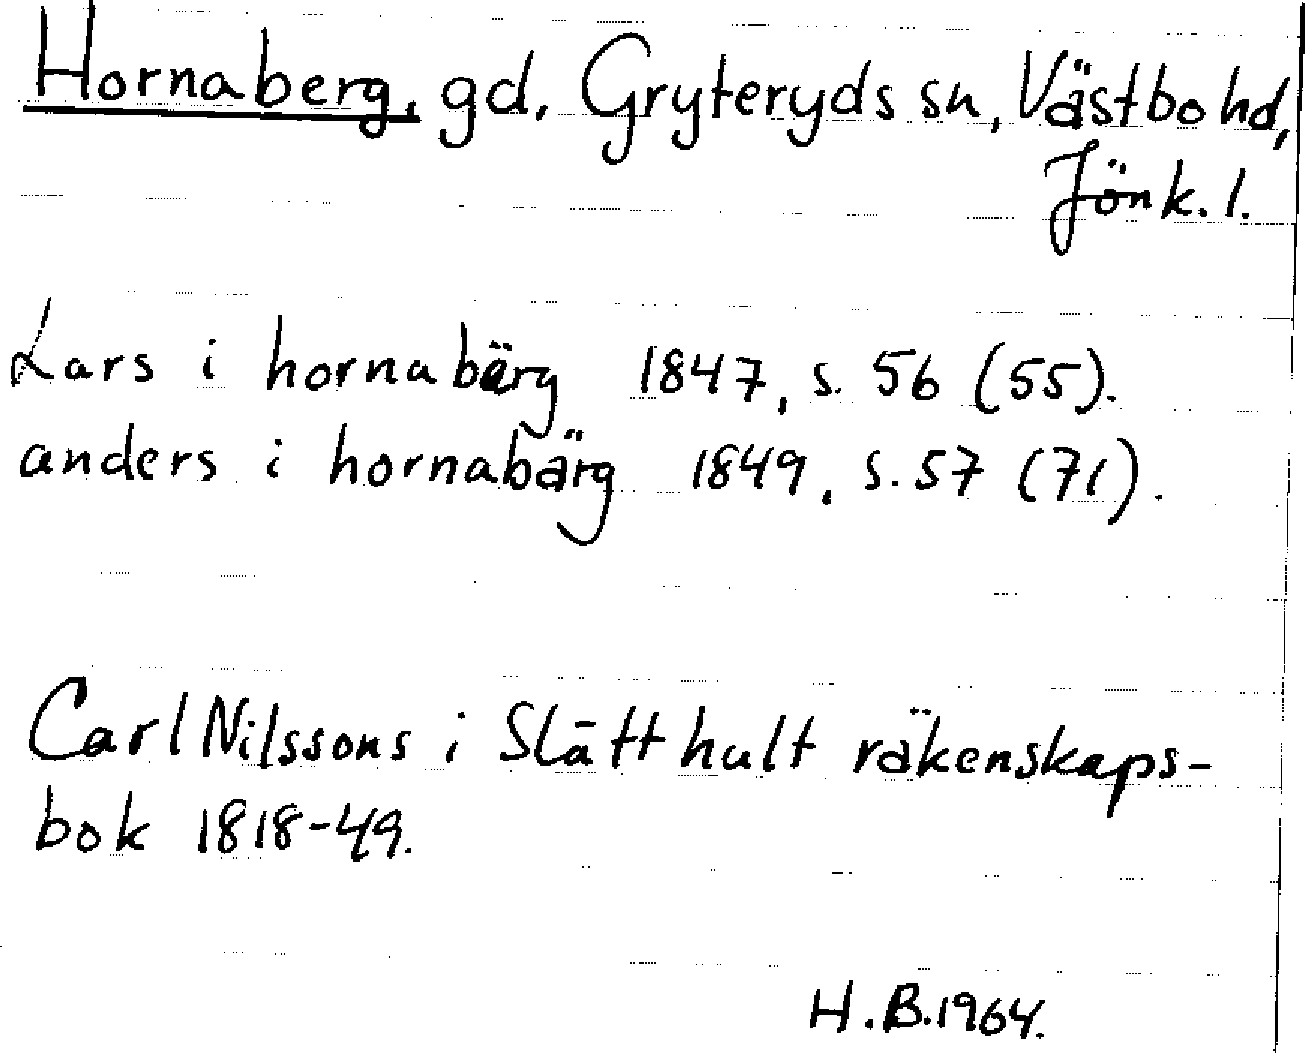 Hornaberg, gd, Gryteryds sn, Västbo hd,
Jönk. l.
Lars i hornabärg 1847, s. 56 (55).
anders i hornabärg 1849, s. 57 (71).
Carl Nilssons i Slätthult räkenskaps-
bok 1818-49.
H.B. 1964.